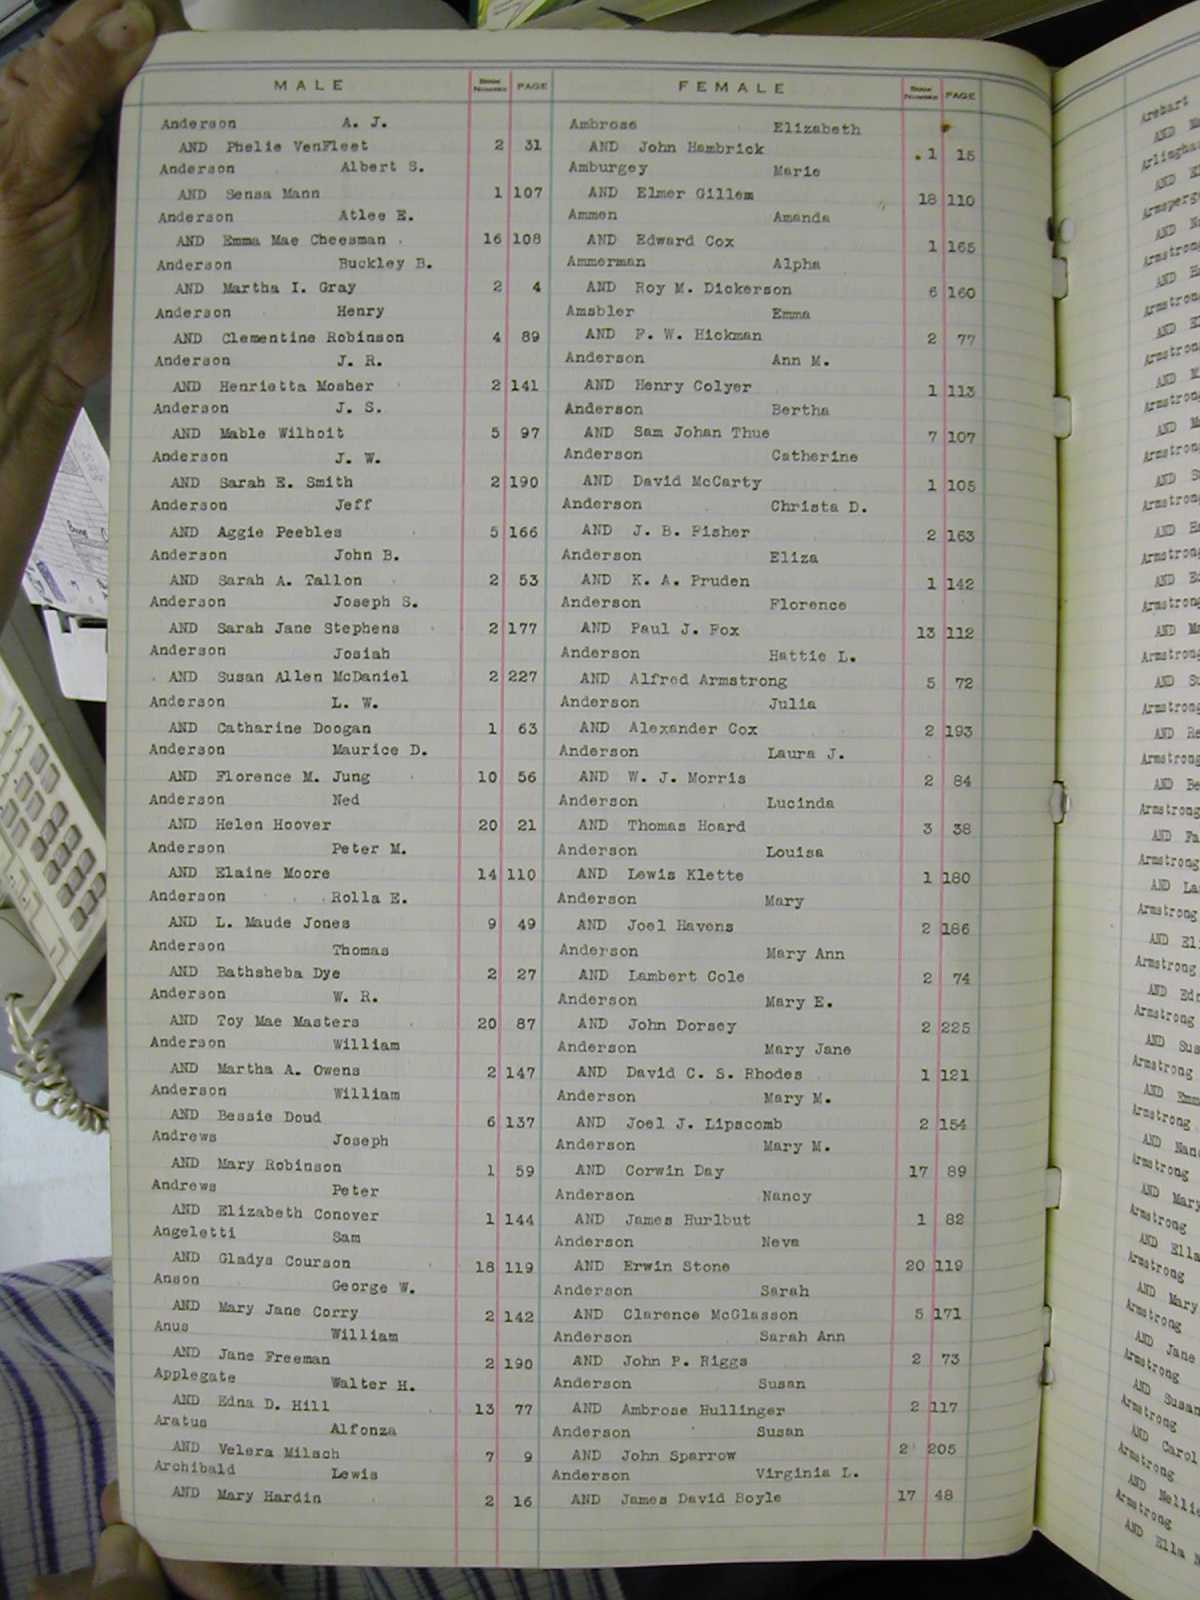 MALE BOOK NUMBER PAGE
Anderson A. J.
AND Phelie VenFleet 2 31
Anderson Albert S.
AND Sensa Mann 1 107
Anderson Atlee E.
AND Emma Mae Cheesman 16 108
Anderson Buckley B.
AND Martha I. Gray 2 4
Anderson Henry
AND Clementine Robinson 4 89
Anderson J. R.
AND Henrietta Mosher 2 141
Anderson J. S.
AND Mable Wilhoit 5 97
Anderson J. W.
AND Sarah E. Smith 2 190
Anderson Jeff
AND Aggie Peebles 5 166
Anderson John B.
AND Sarah A. Tallon 2 53
Anderson Joseph S.
AND Sarah Jane Stephens 2 177
Anderson Josiah
AND Susan Allen McDaniel 2 227
Anderson L. W.
AND Catharine Doogan 1 63
Anderson Maurice D.
AND Florence M. Jung 10 56
Anderson Ned
AND Helen Hoover 20 21
Anderson Peter M.
AND Elaine Moore 14 110
Anderson Rolla E.
AND L. Maude Jones 9 49
Anderson Thomas
AND Bathsheba Dye 2 27
Anderson W. R.
AND Toy Mae Masters 20 87
Anderson William
AND Martha A. Owens 2 147
Anderson William
AND Bessie Doud 6 137
Andrews Joseph
AND Mary Robinson 1 59
Andrews Peter
AND Elizabeth Conover 1 144
Angeletti Sam
AND Gladys Courson 18 119
Anson George W.
AND Mary Jane Corry 2 142
Anus William
AND Jane Freeman 2 190
Applegate Walter H.
AND Edna D. Hill 13 77
Aratus Alfonza
AND Velera Milsch 7 9
Archibald Lewis
AND Mary Hardin 2 16
FEMALE BOOK NUMBER PAGE
Ambrose Elizabeth
AND John Hambrick 1 15
Amburgey Marie
AND Elmer Gillem 18 110
Ammen Amanda
AND Edward Cox 1 165
Ammerman Alpha
AND Roy M. Dickerson 6 160
Amsbler Emma
AND F. W. Hickman 2 77
Anderson Ann M.
AND Henry Colyer 1 113
Anderson Bertha
AND Sam Johan Thue 7 107
Anderson Catherine
AND David McCarty 1 105
Anderson Christa D.
AND J. B. Fisher 2 163
Anderson Eliza
AND K. A. Pruden 1 142
Anderson Florence
AND Paul J. Fox 13 112
Anderson Hattie L.
AND Alfred Armstrong 5 72
Anderson Julia
AND Alexander Cox 2 193
Anderson Laura J.
AND W. J. Morris 2 84
Anderson Lucinda
AND Thomas Hoard 3 38
Anderson Louisa
AND Lewis Klette 1 180
Anderson Mary
AND Joel Havens 2 186
Anderson Mary Ann
AND Lambert Cole 2 74
Anderson Mary E.
AND John Dorsey 2 225
Anderson Mary Jane
AND David C. S. Rhodes 1 121
Anderson Mary M.
AND Joel J. Lipscomb 2 154
Anderson Mary M.
AND Corwin Day 17 89
Anderson Nancy
AND James Hurlbut 1 82
Anderson Neva
AND Erwin Stone 20 119
Anderson Sarah
AND Clarence McGlasson 5 171
Anderson Sarah Ann
AND John P. Riggs 2 73
Anderson Susan
AND Ambrose Hullinger 2 117
Anderson Susan
AND John Sparrow 2 205
Anderson Virginia L.
AND James David Boyle 17 48